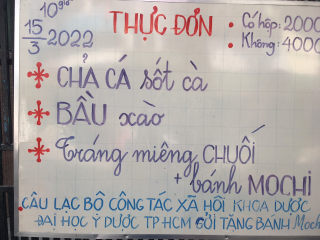 10 giờ
15/3 2022
THỰC ĐƠN
• Có hộp: 2000
• Không: 4000
* CHẢ CÁ sốt cà
* BẦU xào
* Tráng miêng CHUỐI
+ bánh MOCHI
CÂU LẠC BỘ CÔNG TÁC XÃ HỘI KHOA DƯỢC
ĐẠI HỌC Y DƯỢC TP HCM GỬI TẶNG BÁNH Moch